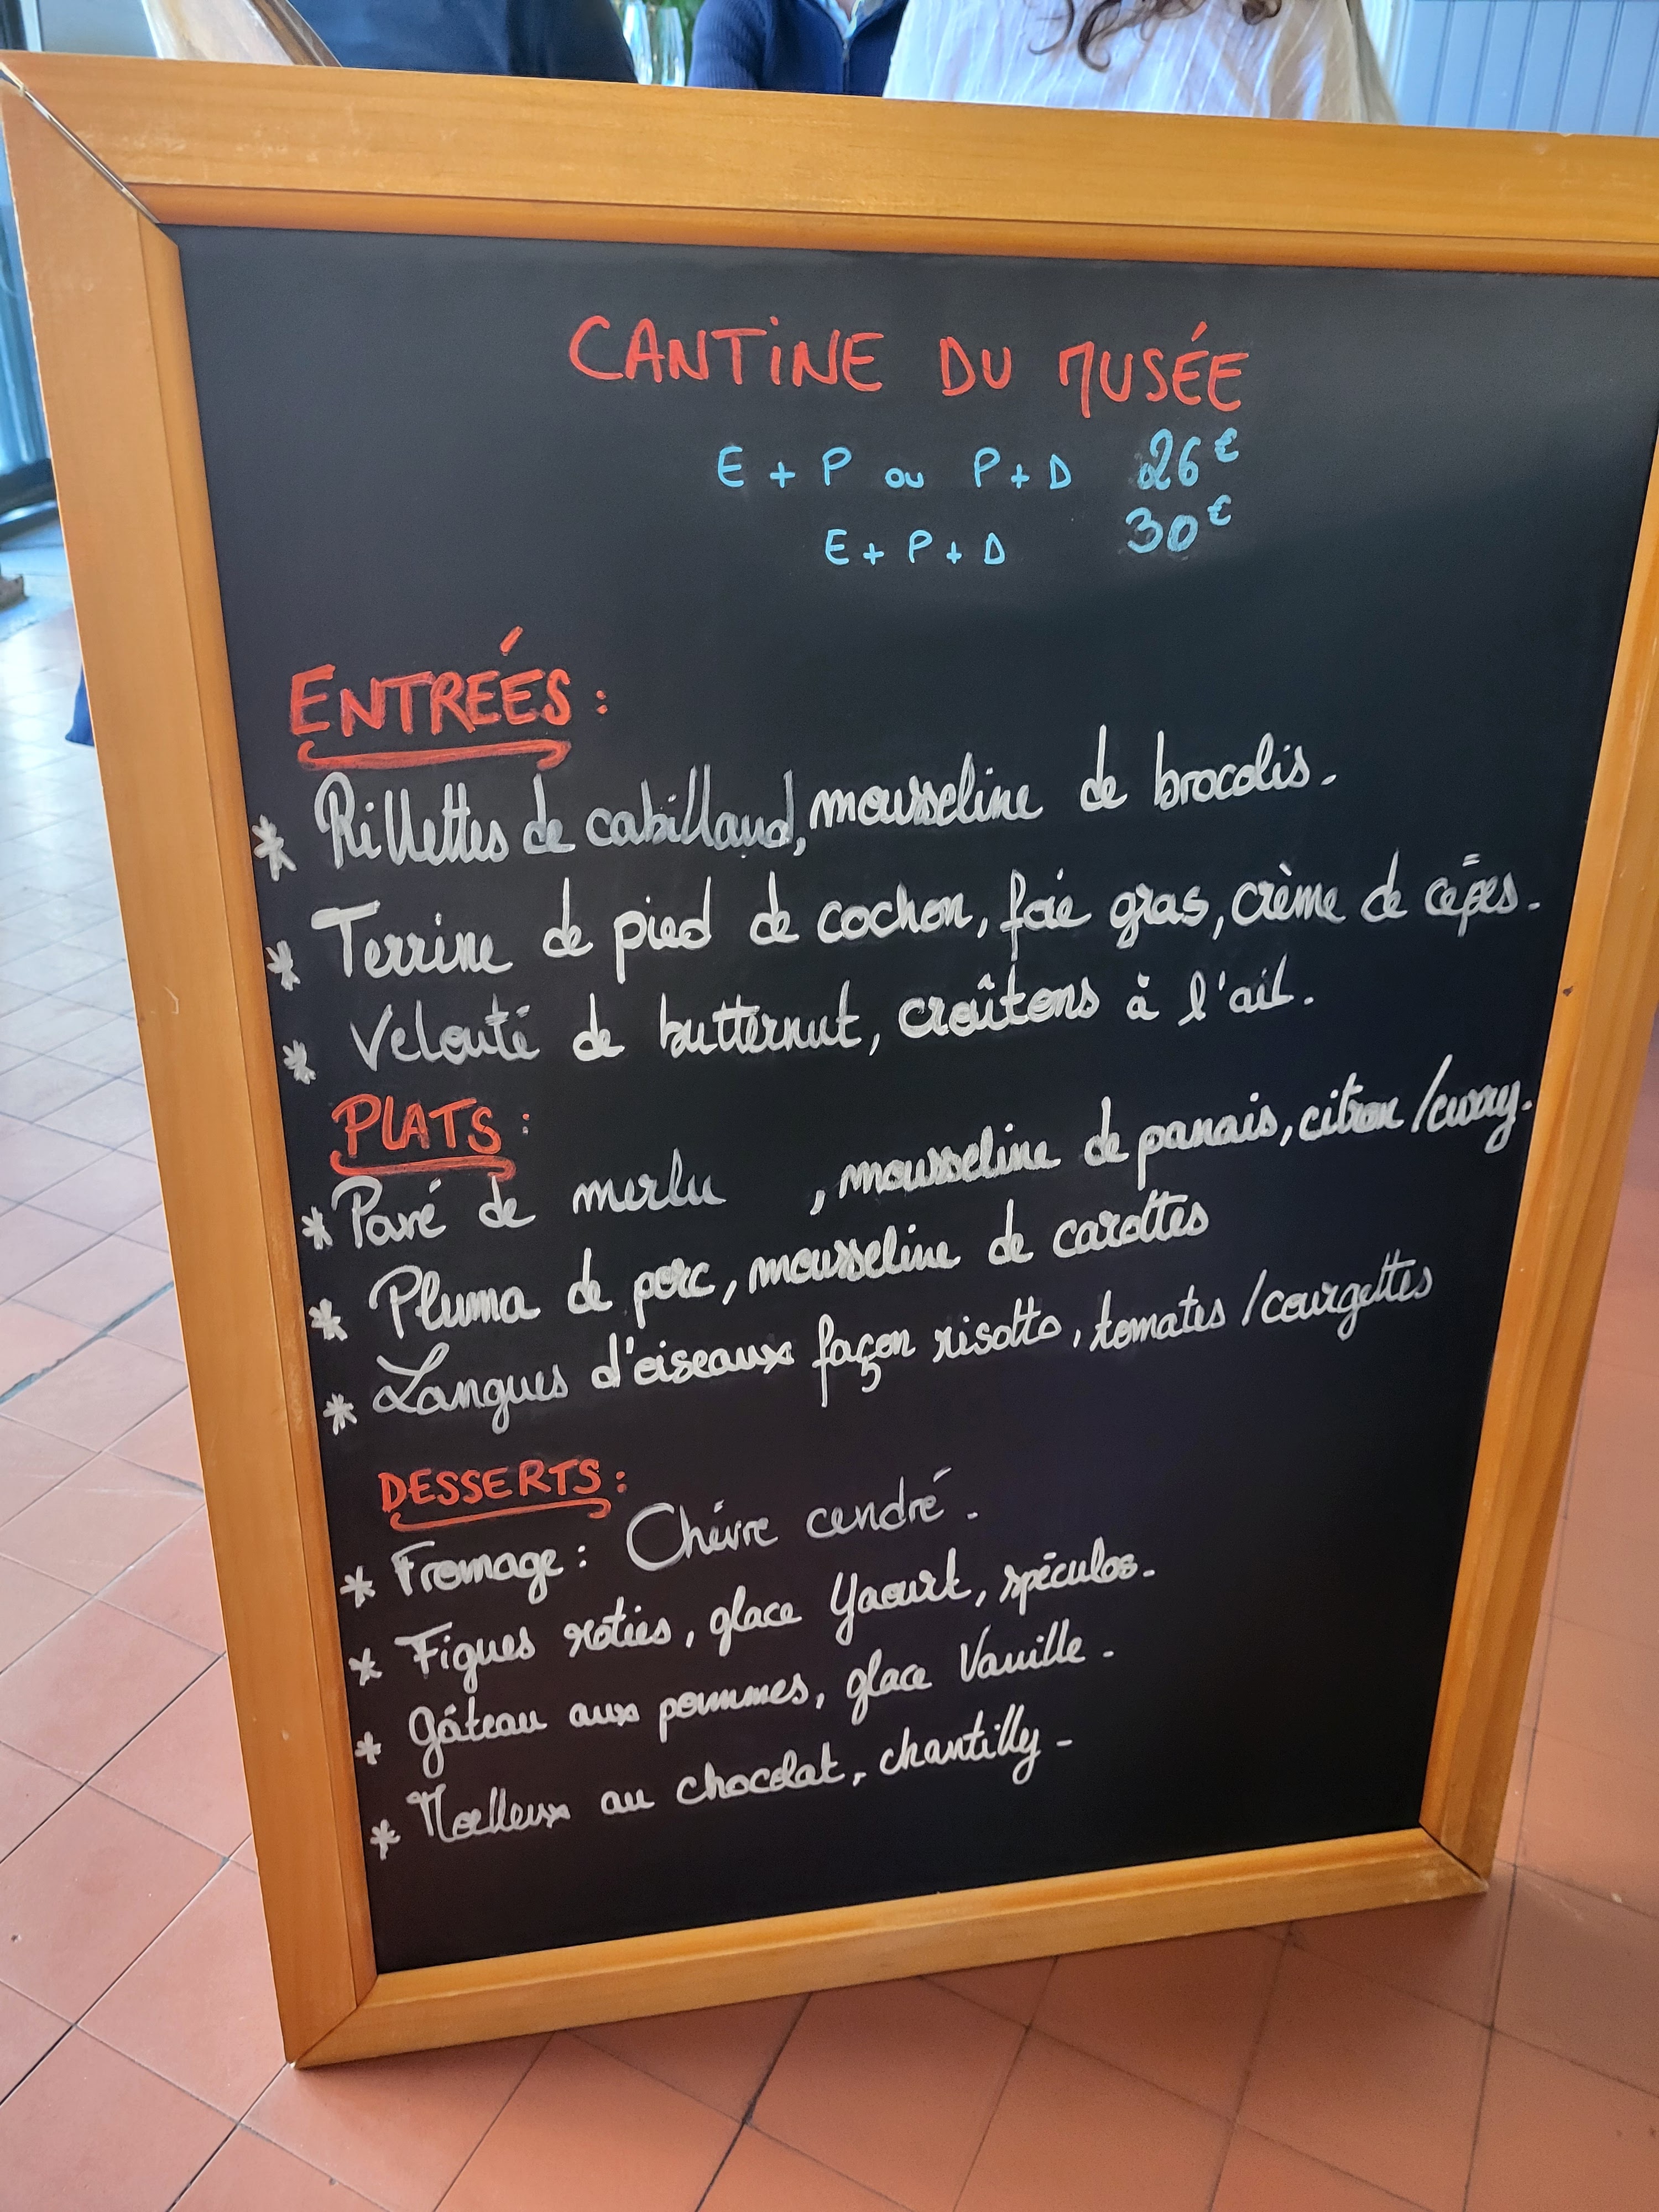 CANTiNE DU MUSÉE
E + P ou P + D 26€
E + P + D 30€
ENTRÉES :
* Rillettes de cabillaud, mousseline de brocolis.
* Terrine de pied de cochon, foie gras, crème de cèpes.
* Velouté de butternut, croûtons à l'ail.
PLATS :
* Pavé de merlu , mousseline de panais, citron / curry.
* Pluma de porc, mousseline de carottes
* Langues d'oiseaux façon risotto, tomates / courgettes
DESSERTS :
* Fromage : Chèvre cendré.
* Figues roties, glace Yaourt, spéculos.
* Gâteau aux pommes, glace Vanille.
* Moelleux au chocolat, chantilly.